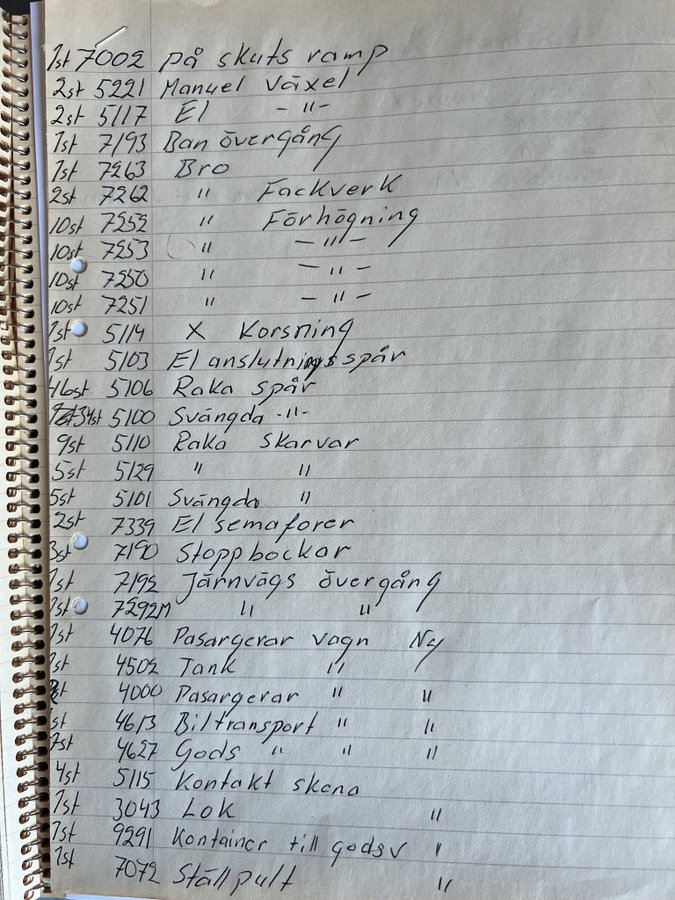 1st 7002 på skuts ramp
2st 5221 Manuel växel
2st 5117 El -"-
1st 7193 Ban övergång
1st 7263 Bro
2st 7262 " Fackverk
10st 7252 " Förhögning
10st 7253 " -"-
10st 7250 " -"-
10st 7251 " -"-
1st 5114 X Korsning
1st 5103 El anslutningsspår
46st 5106 Raka spår
34st 5100 Svängda -"-
9st 5110 Raka skarvar
5st 5129 " "
5st 5101 Svängda "
2st 7339 El semaforer
3st 7190 Stoppbockar
1st 7192 Järnvägs övergång
1st 7292M " "
1st 4076 Pasargerar vagn Ny
1st 4502 Tank "
st 4000 Pasargerar " "
1st 4613 Biltransport " "
1st 4627 Gods " " "
4st 5115 Kontakt skena
1st 3043 Lok "
1st 9291 Kontainer till godsv "
1st 7072 Ställpult "